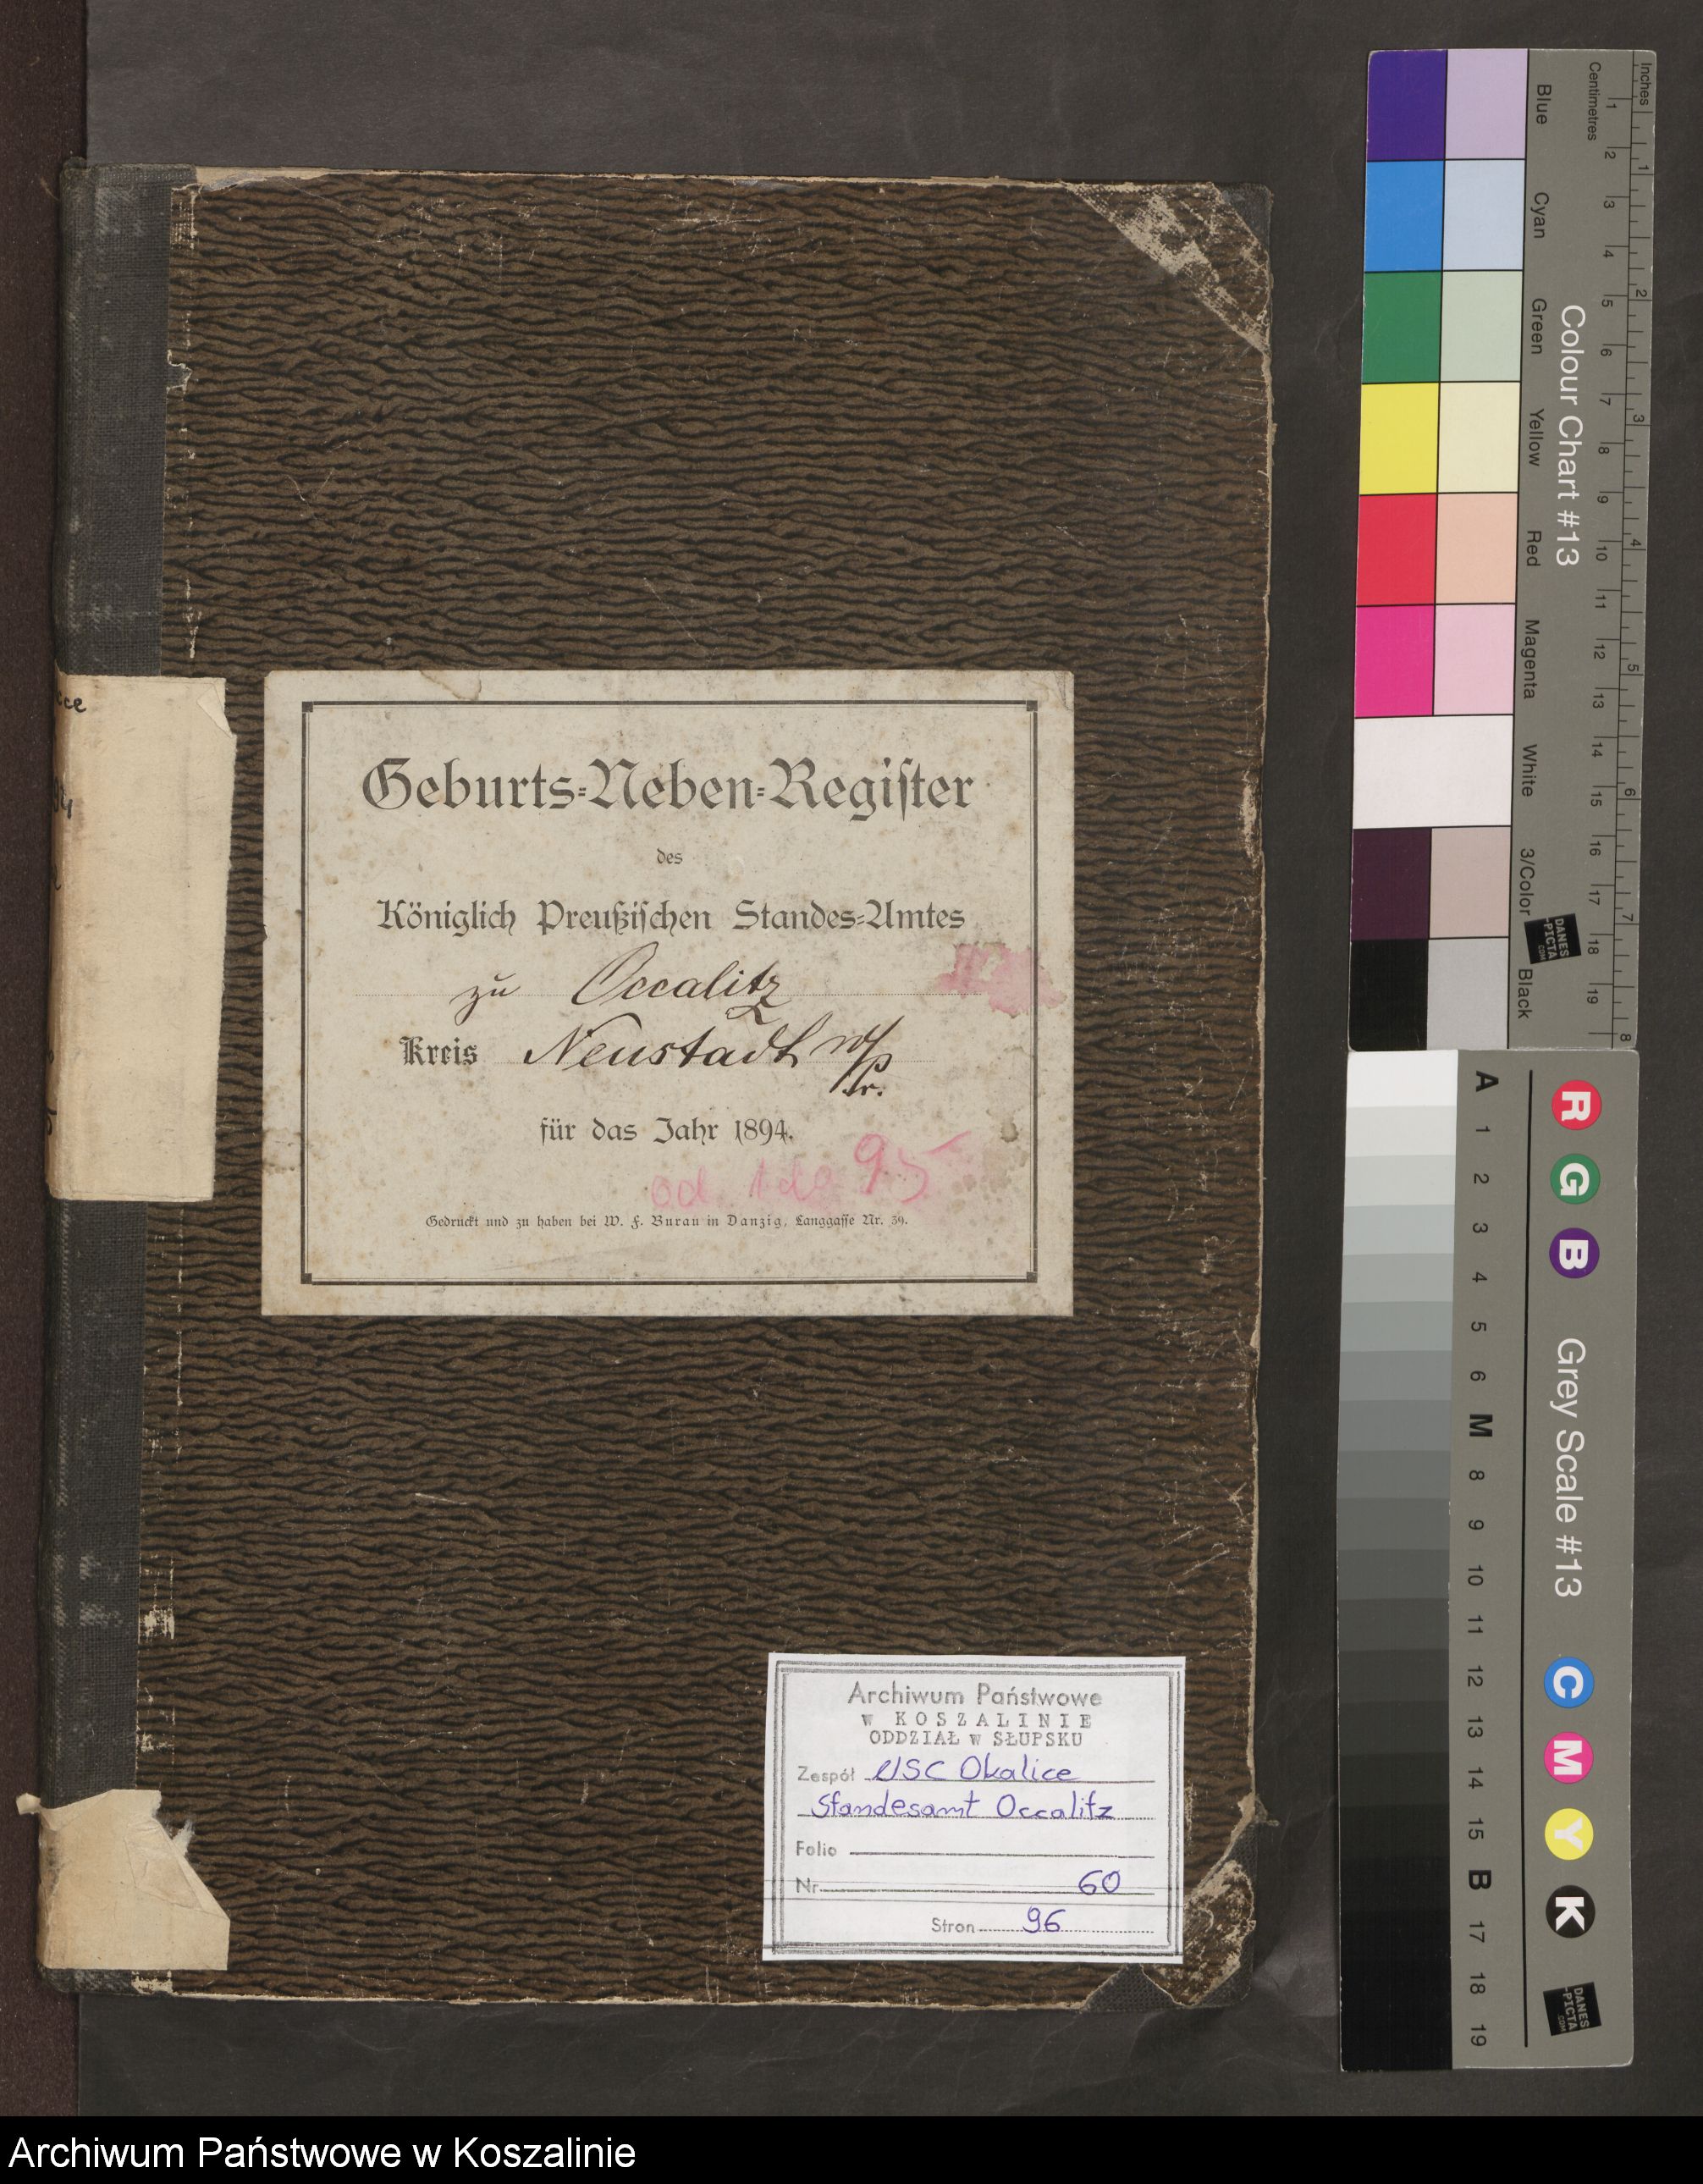 Geburts-Neben-Register
des
Königlich Preußischen Standes-Amtes
zu Occalitz
Kreis Neustadt w/Pr.
für das Jahr 1894.
od. 1 do 95
Gedruckt und zu haben bei W. F. Burau in Danzig, Langgasse Nr. 39.
Archiwum Państwowe
w KOSZALINIE
ODDZIAŁ w SŁUPSKU
Zespół USC Okalice
Standesamt Occalitz
Folio
Nr 60
Stron 96
Inches 1 2 3 4 5 6 7 8
Centimetres 1 2 3 4 5 6 7 8 9 10 11 12 13 14 15 16 17 18 19
Colour Chart #13
Blue Cyan Green Yellow Red Magenta White 3/Color Black
DANES
-PICTA
.COM
A 1 2 3 4 5 6 M 8 9 10 11 12 13 14 15 B 17 18 19
R G B
Grey Scale #13
C M Y K
DANES
-PICTA
.COM
Archiwum Państwowe w Koszalinie